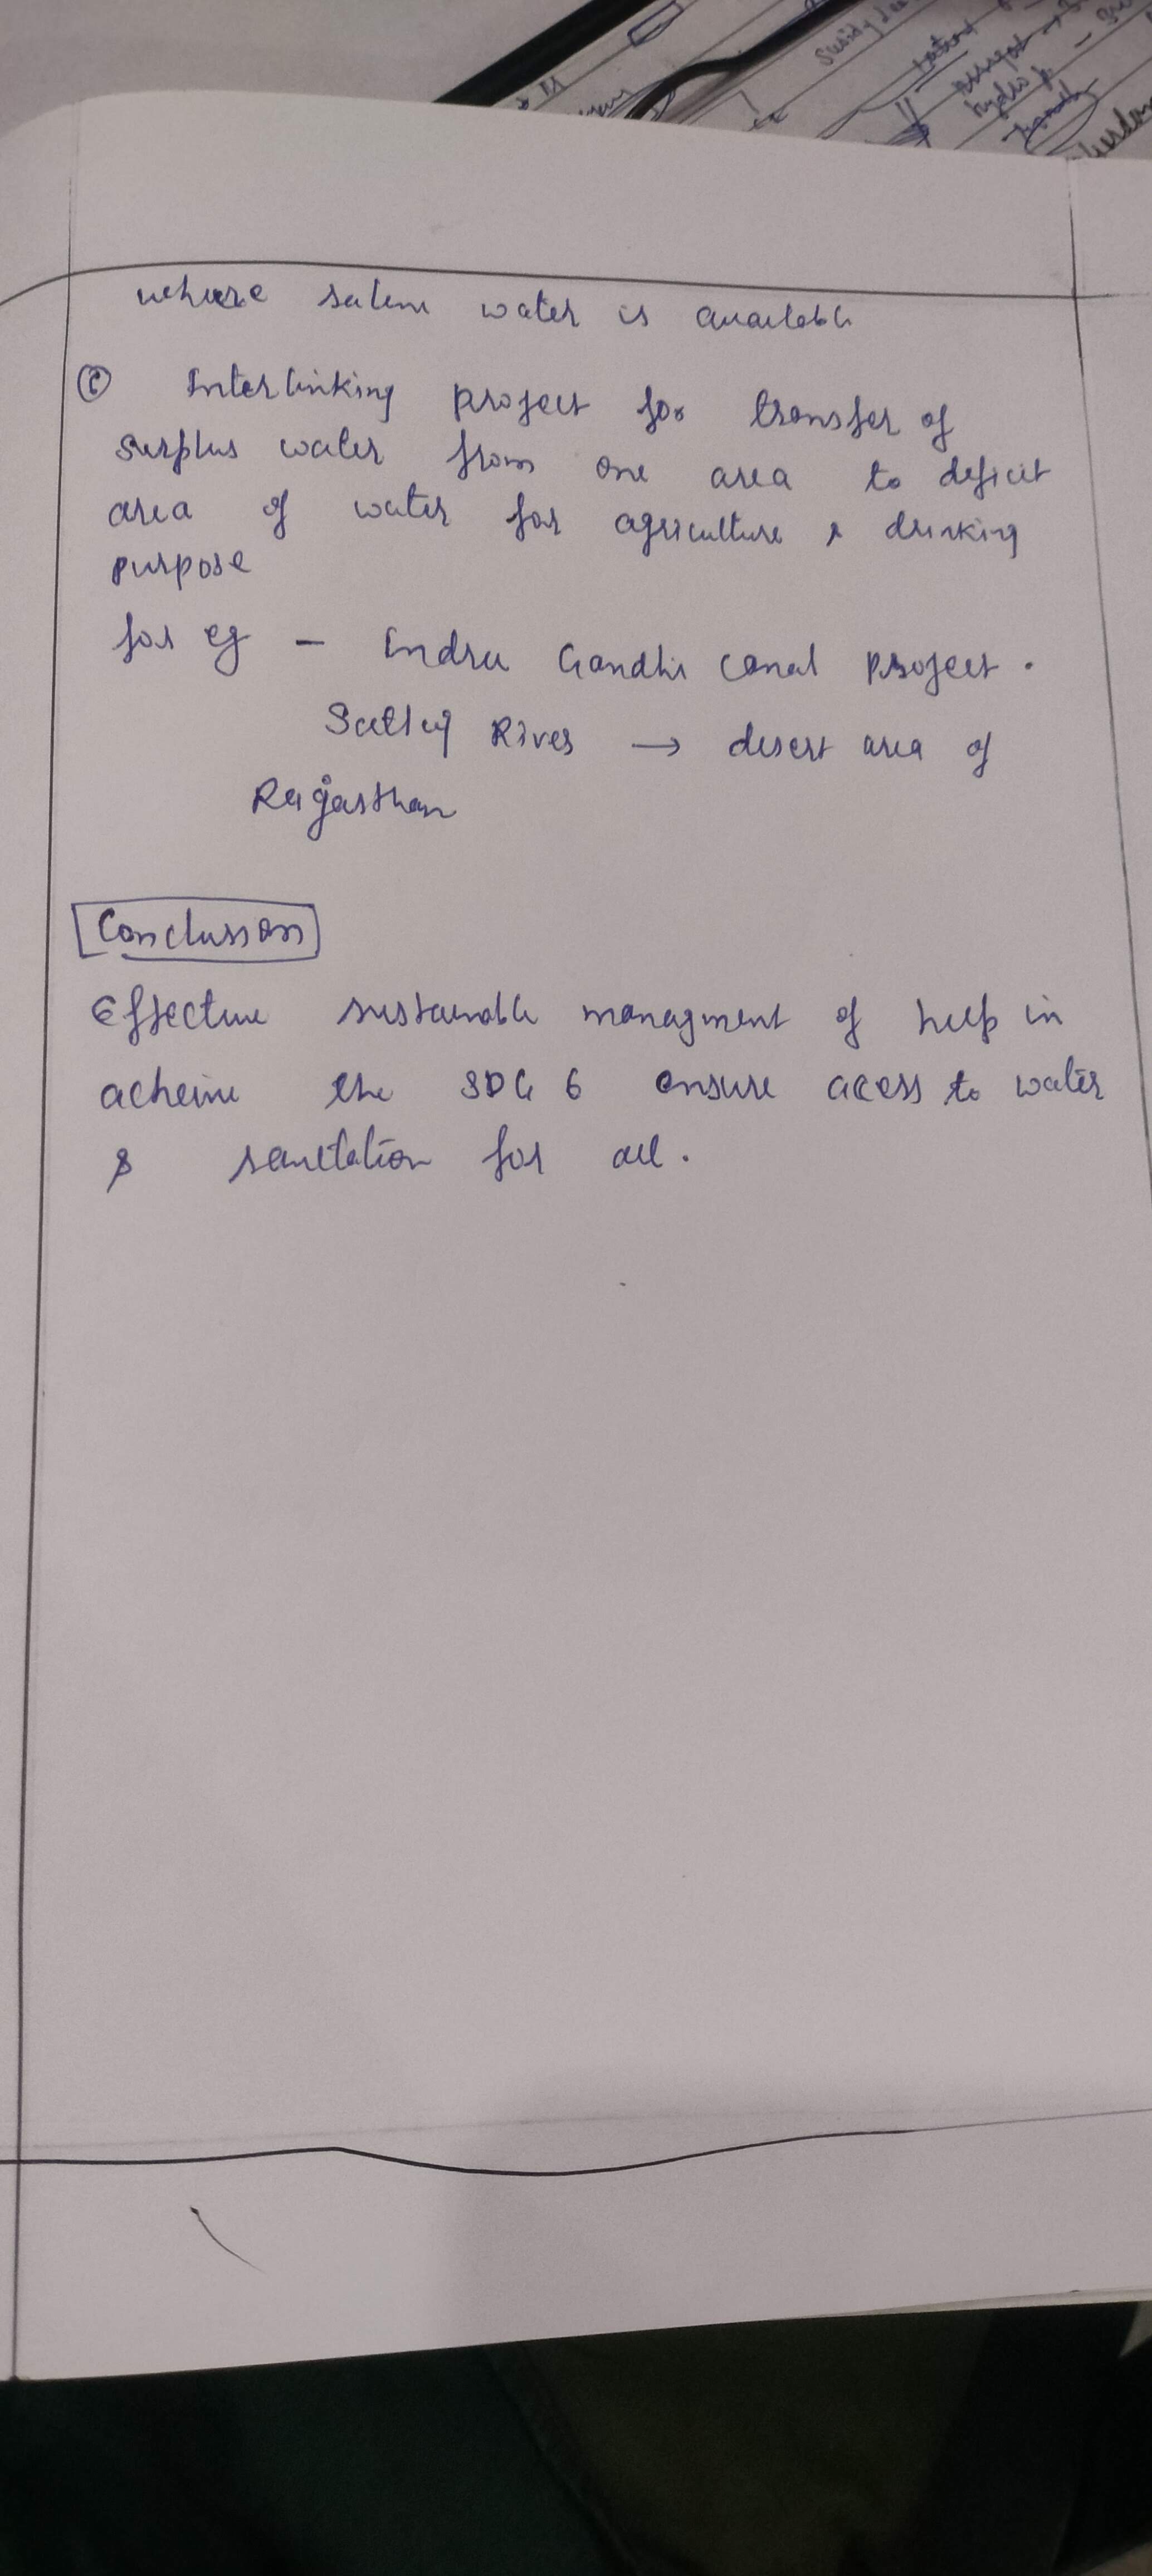 where saline water is available
© Interlinking project for transfer of
surplus water from one area to deficit
area of water for agriculture & drinking
purpose
for eg - Indra Gandhi Canal project.
Sutlej River → desert area of
Rajasthan
Conclusion
Effective sustainable managment of help in
acheive the SDG 6 ensure acess to water
& sanitation for all.